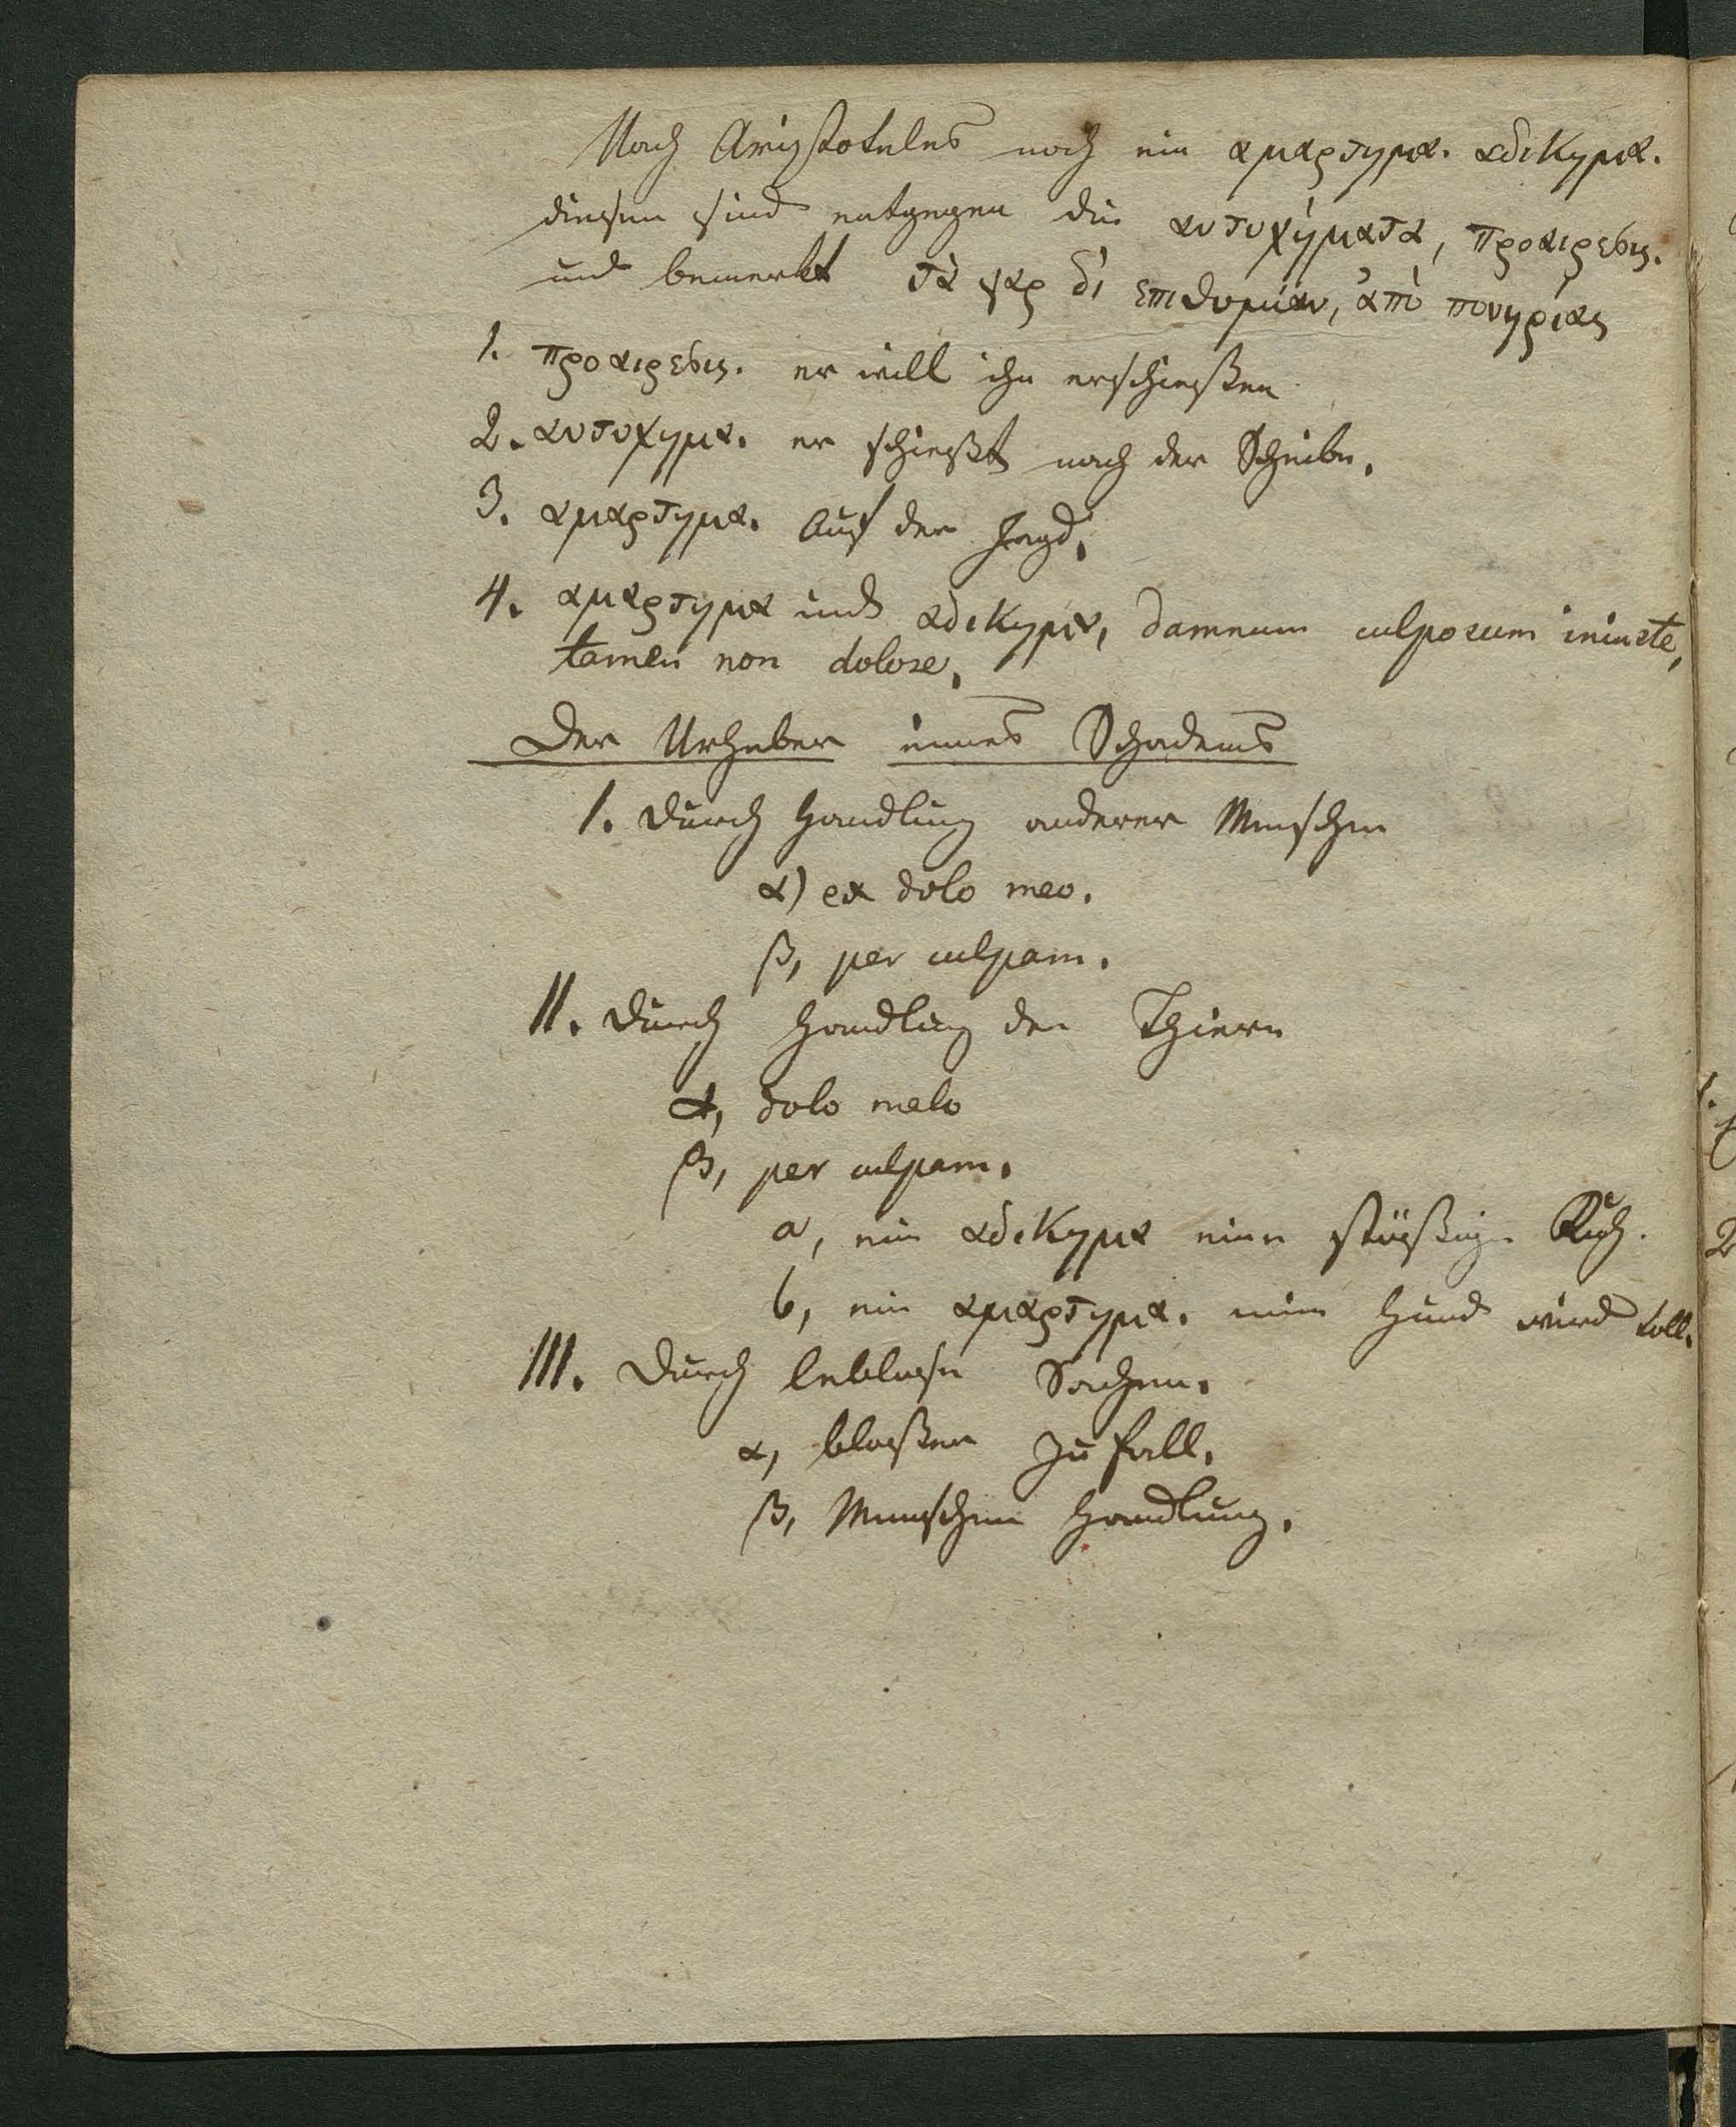 Nach Aristoteles noch ein αμαρτημα. αδικημα.
diesem sind entgegen die ατυχήματα, προαιρεσις.
und bemerkt τὰ γαρ δἰ επιθυμίαν, ἀπὸ πονηρίας
1. προαιρεσις. er will ihn erschießen
2. ατυχημα. er schießt nach der Scheibe.
3. αμαρτημα. Auf der Jagd.
4. αμαρτημα und αδικημα, damnum culposum iniuste,
tamen non dolose.
Der Urheber eines Schadens
I. Durch Handlung anderer Menschen
α) ex dolo meo.
β, per culpam.
II. Durch Handlung der Thiere
α, dolo malo
β, per culpam.
a, ein αδικημα eine stößige Kuh.
b, ein αμαρτημα. mein Hund wird toll.
III. Durch leblose Sachen.
α, bloßer Zufall.
β, Menschen Handlung.